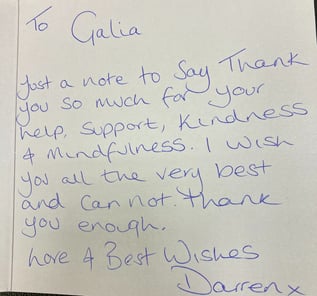 To Galia
Just a note to Say Thank
you so much for your
help, Support, Kindness
& Mindfulness. I Wish
you all the very best
and can not. thank
you enough.
Love & Best Wishes
Darren x